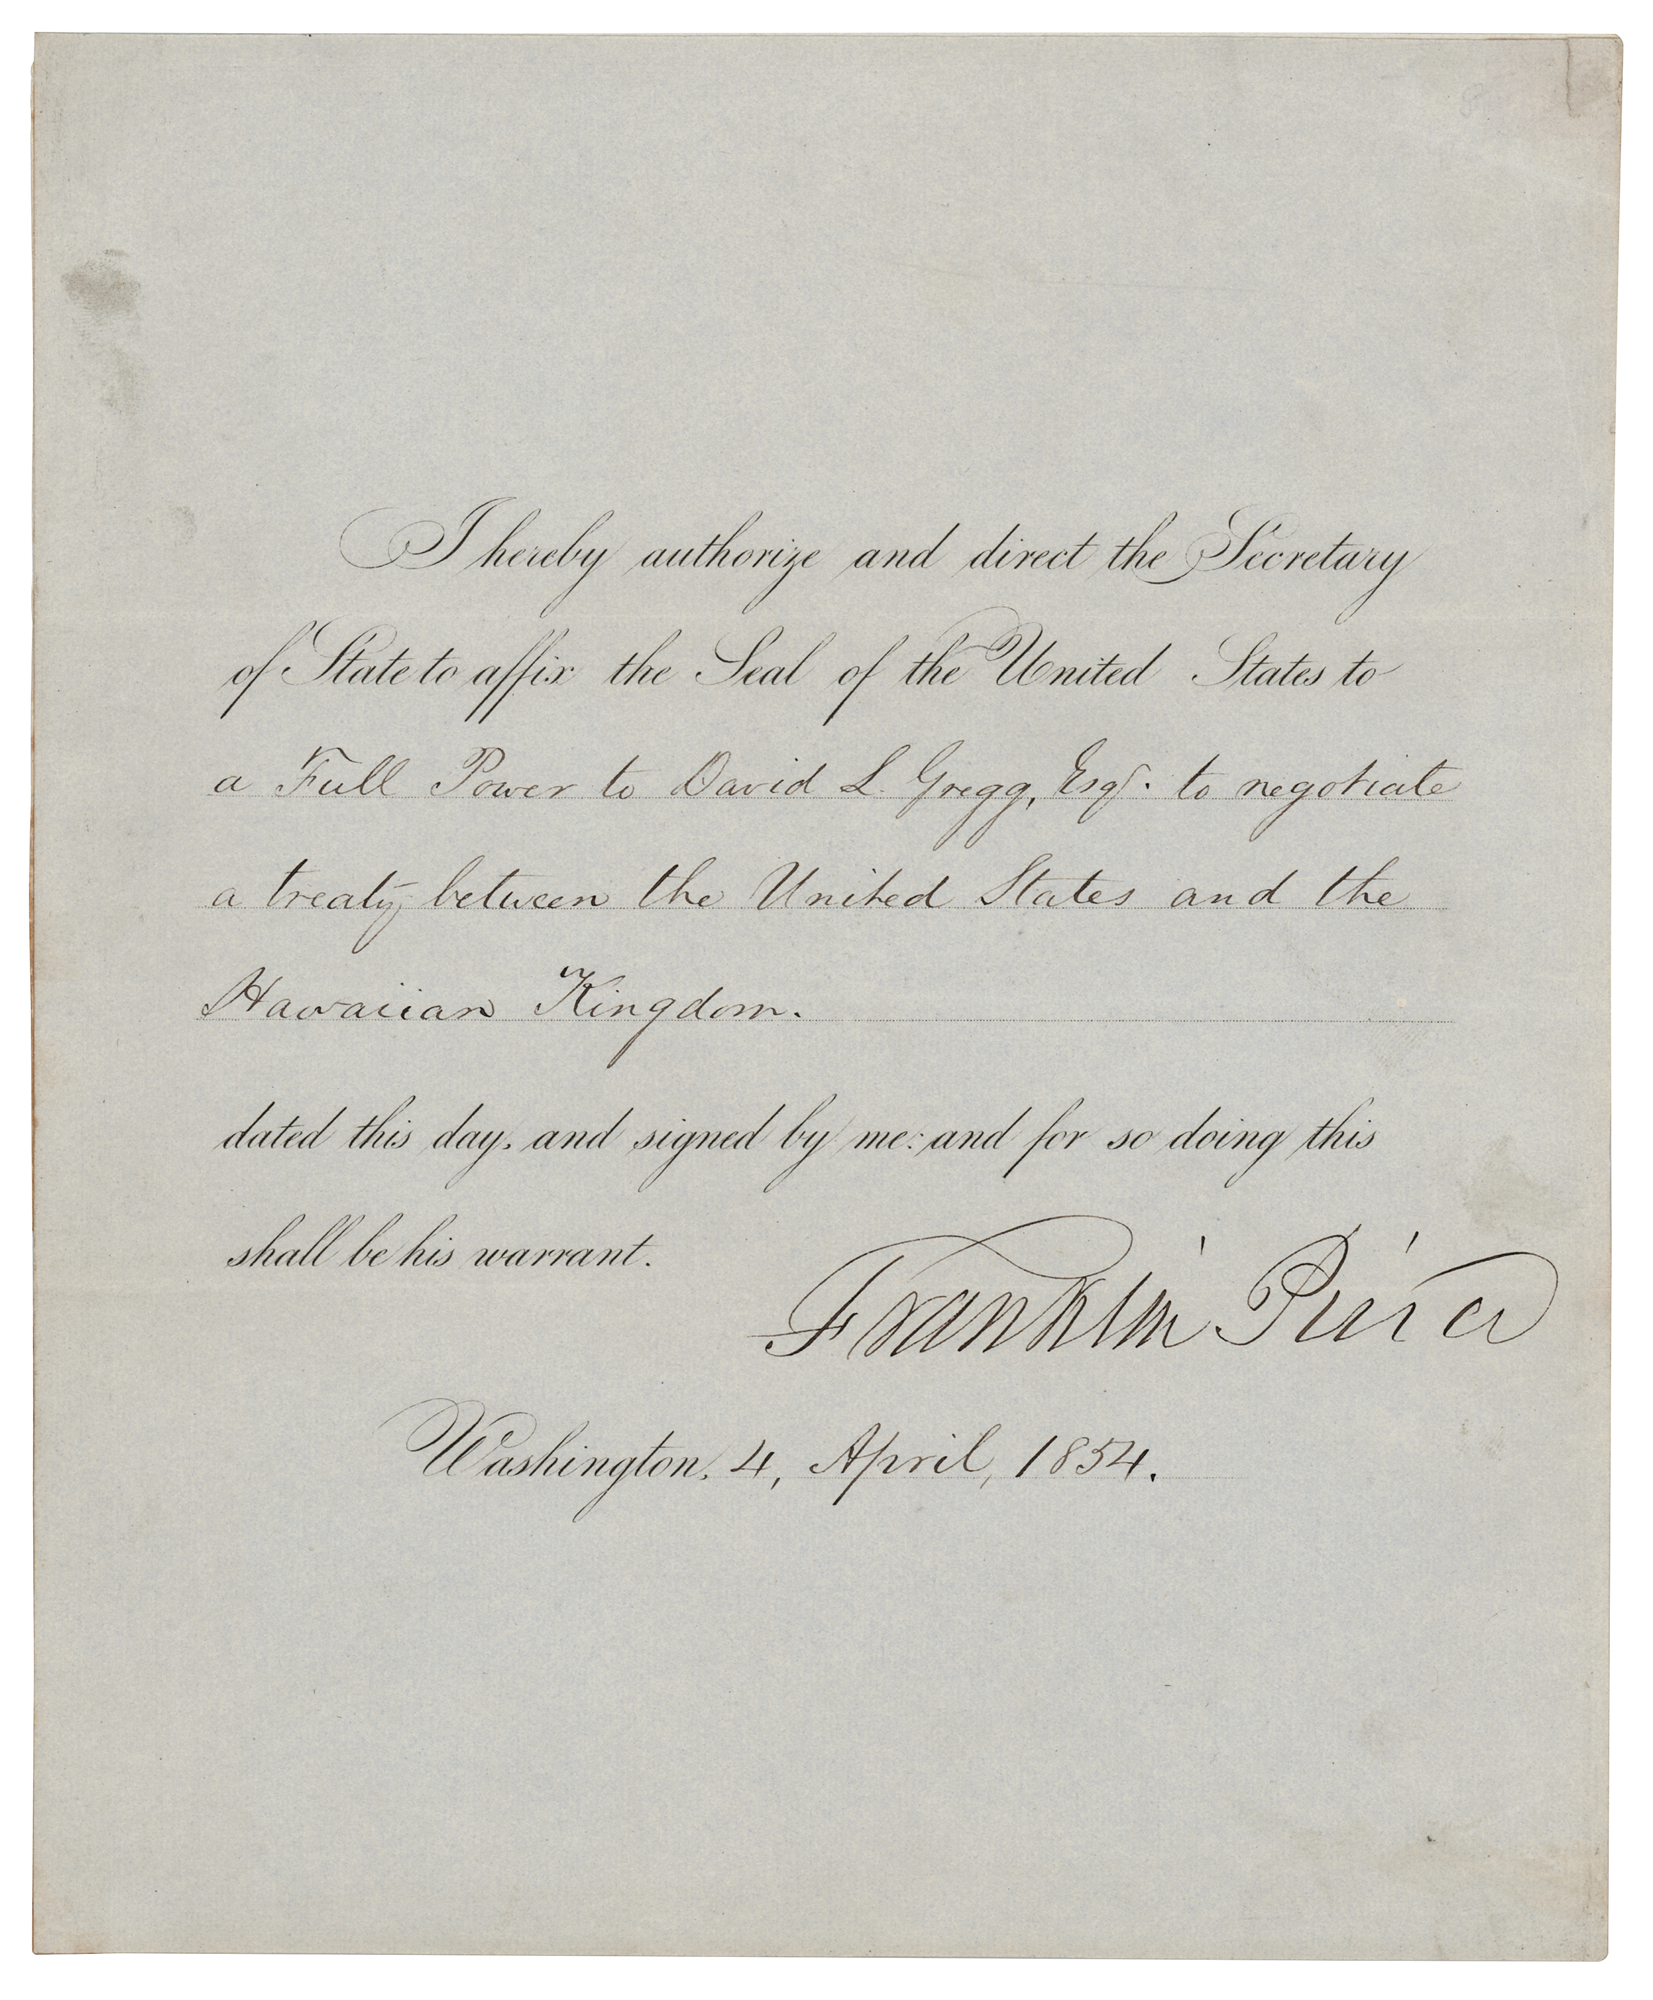 I hereby authorize and direct the Secretary
of State to affix the Seal of the United States to
a Full Power to David L. Gregg, Esqr. to negotiate
a treaty between the United States and the
Hawaiian Kingdom.
dated this day, and signed by me: and for so doing this
shall be his warrant.
Franklin Pierce
Washington, 4, April, 1854.